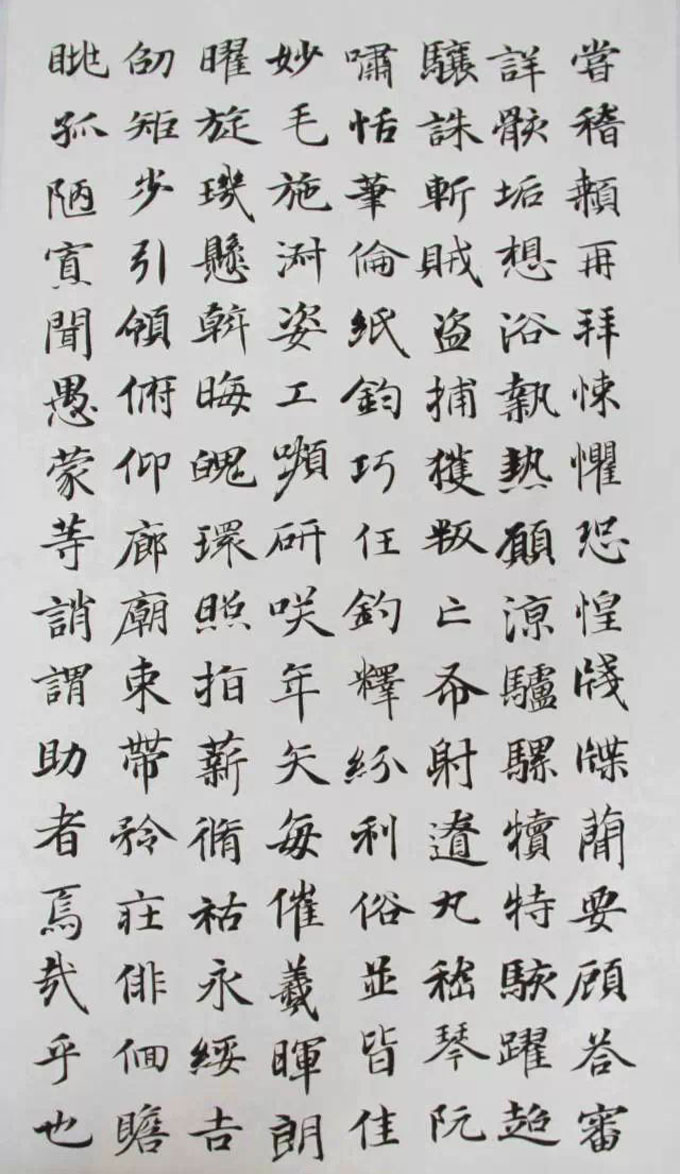 嘗稽顙再拜悚懼恐惶牋牒蕳要顧荅審
詳骸垢想浴執熱願涼驢騾犢特駭躍超
驤誅斬賊盜捕獲叛亡布射遼丸嵇琴阮
嘯恬筆倫紙鈞巧任釣釋紛利俗並皆佳
妙毛施淑姿工顰研咲年矢每催羲暉朗
曜旋璣懸斡晦魄環照指薪脩祜永綏吉
劭矩步引領俯仰廊廟束帶矜莊俳佪瞻
眺孤陋寡聞愚蒙等誚謂助者焉哉乎也